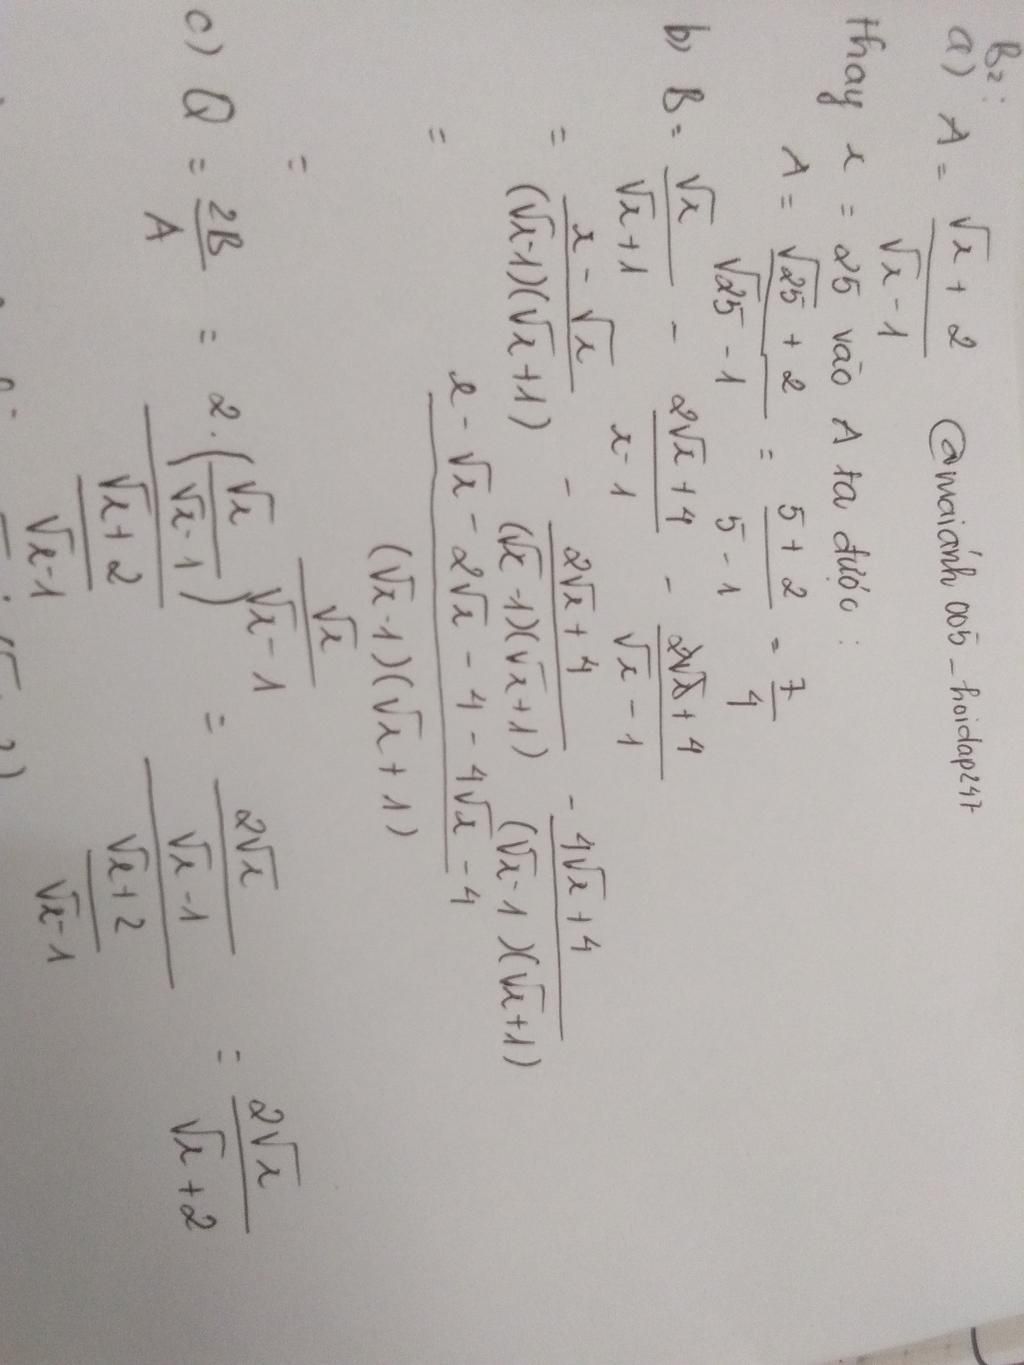 B2:
a) A = (√x + 2)/(√x - 1) @maiánh005_hoidap247
thay x = 25 vào A ta được:
A = (√25 + 2)/(√25 - 1) = (5 + 2)/(5 - 1) = 7/4
b) B = √x/(√x + 1) - (2√x + 4)/(x - 1) - (2√x + 4)/(√x - 1)
= (x - √x)/((√x - 1)(√x + 1)) - (2√x + 4)/((√x - 1)(√x + 1)) - (4√x + 4)/((√x - 1)(√x + 1))
= (x - √x - 2√x - 4 - 4√x - 4)/((√x - 1)(√x + 1))
= √x/(√x - 1)
c) Q = 2B/A = (2.(√x/(√x - 1)))/((√x + 2)/(√x - 1)) = (2√x/(√x - 1))/((√x + 2)/(√x - 1)) = 2√x/(√x + 2)